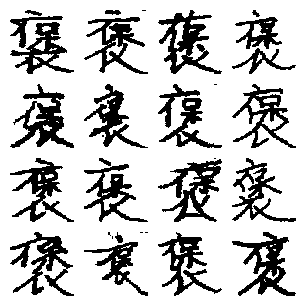 褒褒褒褒
褒褒褒褒
褒褒褒褒
褒褒褒褒